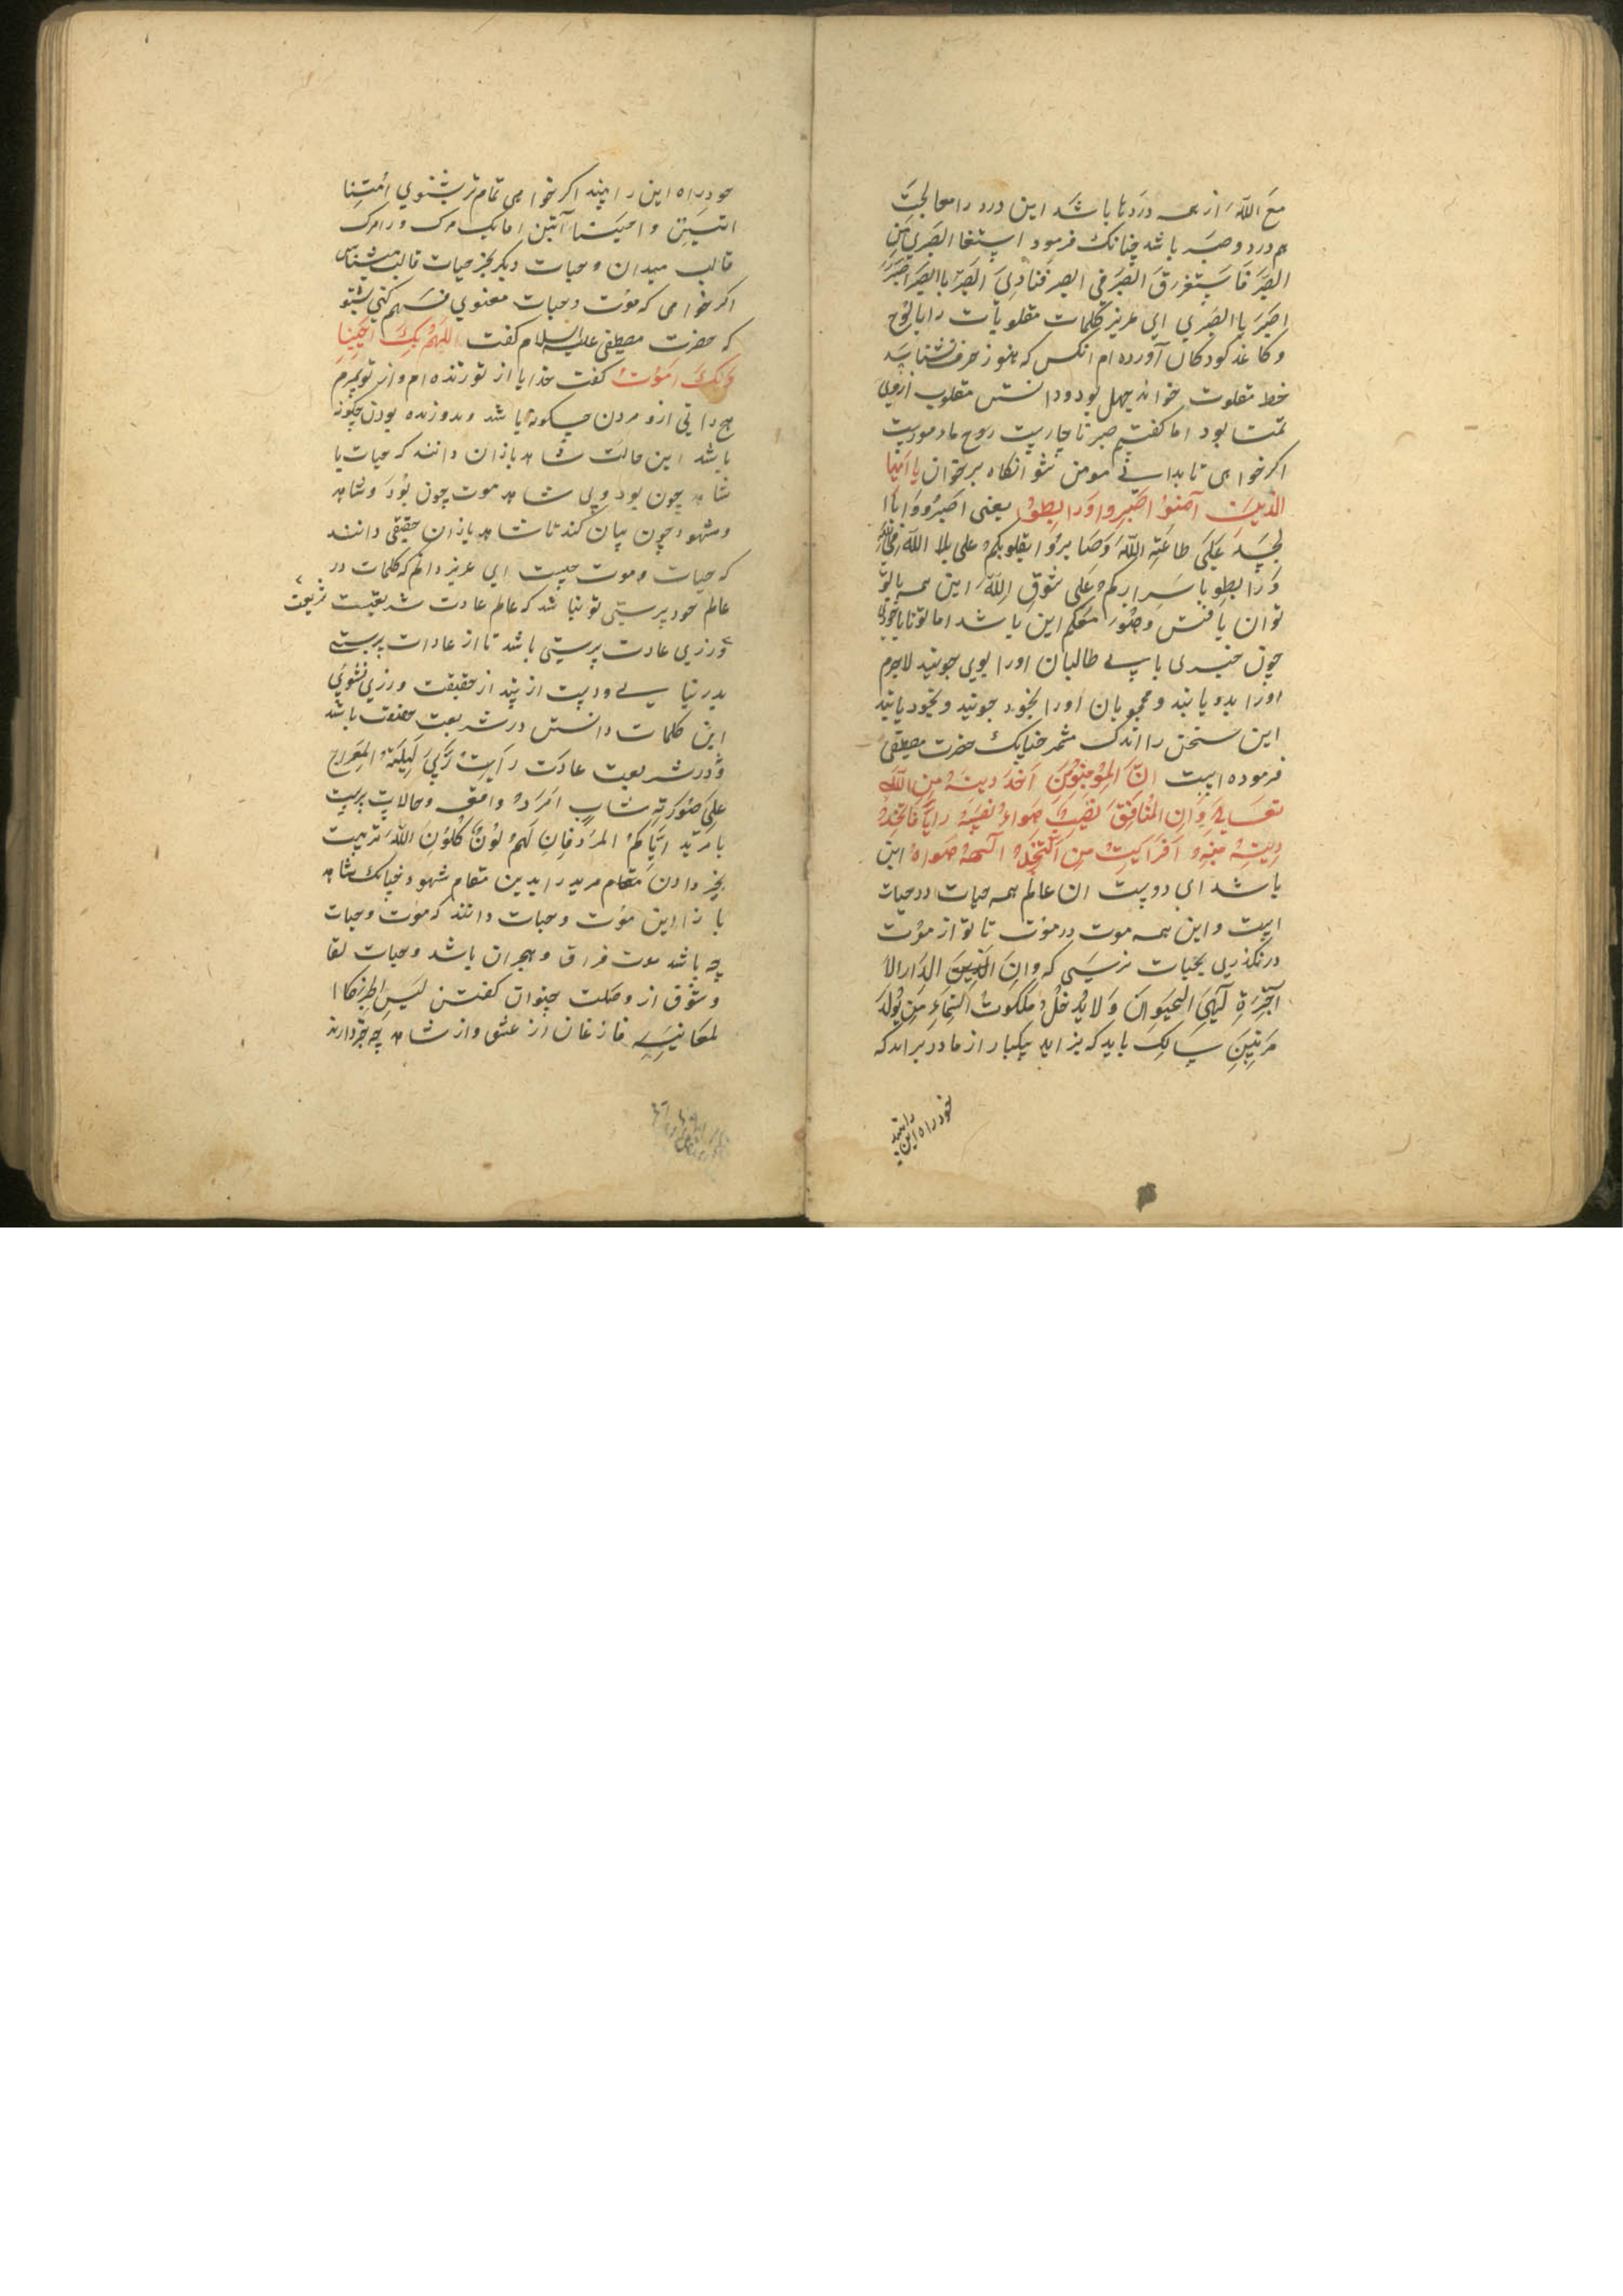 مع الله از همه دردها باشد این درد را معالجت
هم درد و صبر باشد چنانک فرمود استغنا الصبری من
الصبر فاستغرق الصبر فی الصبر فنادی الصبر یا الصبر اصبر
اصبر یا الصبری ای عزیز کلمات مقلوبات را با لوح
و کاغذ کودکان آورده ام انکس که هنوز حرف نشناسد
خط مقلوب خواند جهل بود و دانستن مقلوب ازوی
تمنا بود اما کفتیم صبر تا چاریت روح ما در موریت
اکر خواهی تا بدانی مومن شو انکاه برخوان یا ایها
الذین آمنوا اصبروا ورابطوا یعنی اصبروا
علی طاعة الله وصابروا بقلوبکم علی بلا الله
ورابطوا باسرارکم علی شوق الله این همه با تو
توان یافتن و صور معکم این باشد اما تو تا با خودی
چون خبری یابی طالبان اورا بوی جویند لاجرم
اورا بدو یابند و محجوبان اورا بخود جویند و بخود یابند
این سخن را اندک مشمر چنانک حضرت مصطفی
فرموده است ان المؤمنون اخذ دینه من الله
تعالی وان المنافق نصب هواه
دینه منه افرایت من اتخذ الهه هواه این
باشد ای دوست ان عالم همه حیات در حیات
است و این همه موت در موت تا تو از موت
درنکذری بحیات نرسی که وان الذین الدار الا
آخرة لهی الحیوان ولا یدخل ملکوت السماء من یولد
مرتین سالک باید که بزاید یکبار از مادر براید که
خود راه این
را بیند
خود راه این را بیند اکر خواهی تمام تر بشنوی امتنا
اثنین واحییتنا اثنین اما یک مرک ورا مرک
قالب میدان و حیات دیکر بجز حیات قالب میشناس
اکر خواهی که موت و حیات معنوی فهم کنی بشنو
که حضرت مصطفی علیه السلام کفت اللهم بک احیینا
وبک اموت کفت خدایا از تو زنده ام و از تو بمیرم
هیچ دانی ازو مردن چکونه باشد و بدو زنده بودن چکونه
باشد این حالت شاهد بازان دانند که حیات با
شاهد چون بود و بی شاهد موت چون بود و شاهد
و مشهود چون بیان کند تا شاهد بازان حقیقی دانند
که حیات و موت چیست ای عزیز دانم که کلمات در
عالم خود پرستی تو نباشد که عالم عادت شریعتست شریعت
ورزی عادت پرستی باشد تا از عادات پرستی
بدر نیایی ودست از پند از حقیقت ورزی نشوئی
این کلمات دانستن در شریعت حقیقت باشد
و در شریعت عادت رأیت ربی لیلة المعراج
علی صورة شاب امرد واقف و حالات
ایاکم المرد فان لهم لون کلون الله
خبر دادن مقام مرید را بدین مقام شهود چنانک شاهد
بازان این موت و حیات دانند که موت و حیات
چه باشد موت فراق و هجران باشد و حیات لقا
و شوق از وصلت چتوان کفتن لیس الخبر کا ا
لمعانیه فارغان از عشق و از شاهد چه خبر دارند